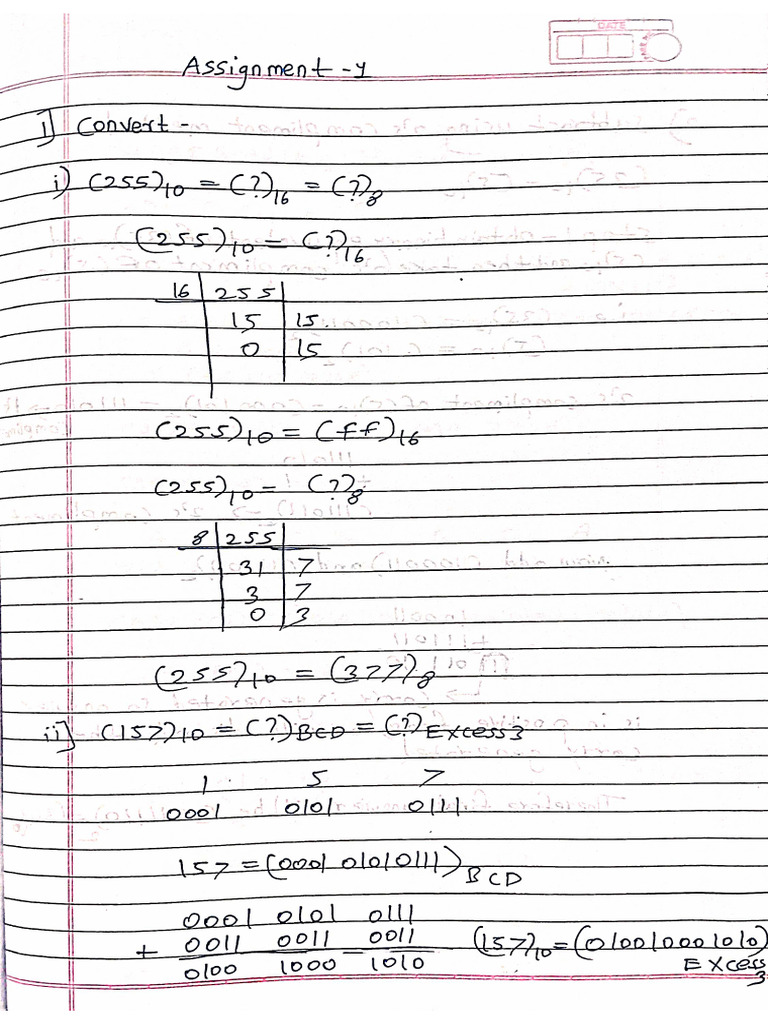 DATE
Assignment - 4
1] Convert -
i) (255)10 = (?)16 = (?)8
(255)10 = (?)16
16 | 255
15 | 15
0 | 15
(255)10 = (ff)16
(255)10 = (?)8
8 | 255
31 | 7
3 | 7
0 | 3
(255)10 = (377)8
ii] (157)10 = (?)BCD = (?)Excess3
1 5 7
0001 0101 0111
157 = (0001 01010111)BCD
0001 0101 0111
+ 0011 0011 0011
0100 1000 1010
(157)10 = (010010001010)
Excess
3